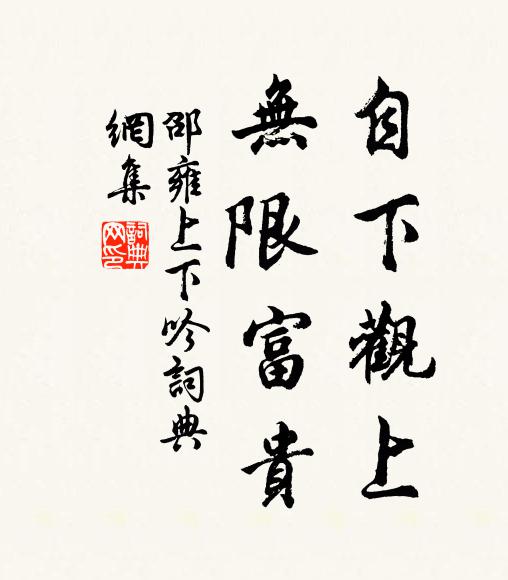 自下觀上
無限富貴
邵雍上下吟詞典
網集
詞典
网印